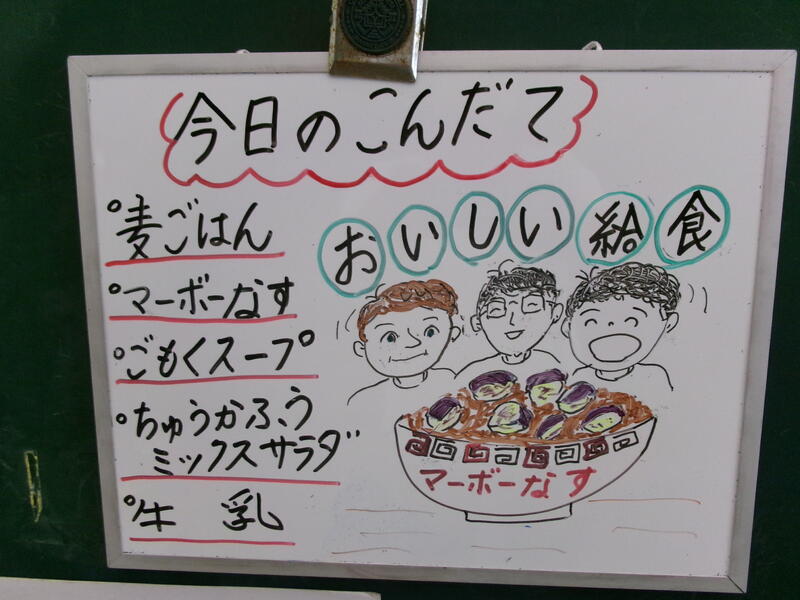 今日のこんだて
°麦ごはん
°マーボーなす
°ごもくスープ
°ちゅうかふう
ミックスサラダ
°牛 乳
おいしい給食
マーボーなす